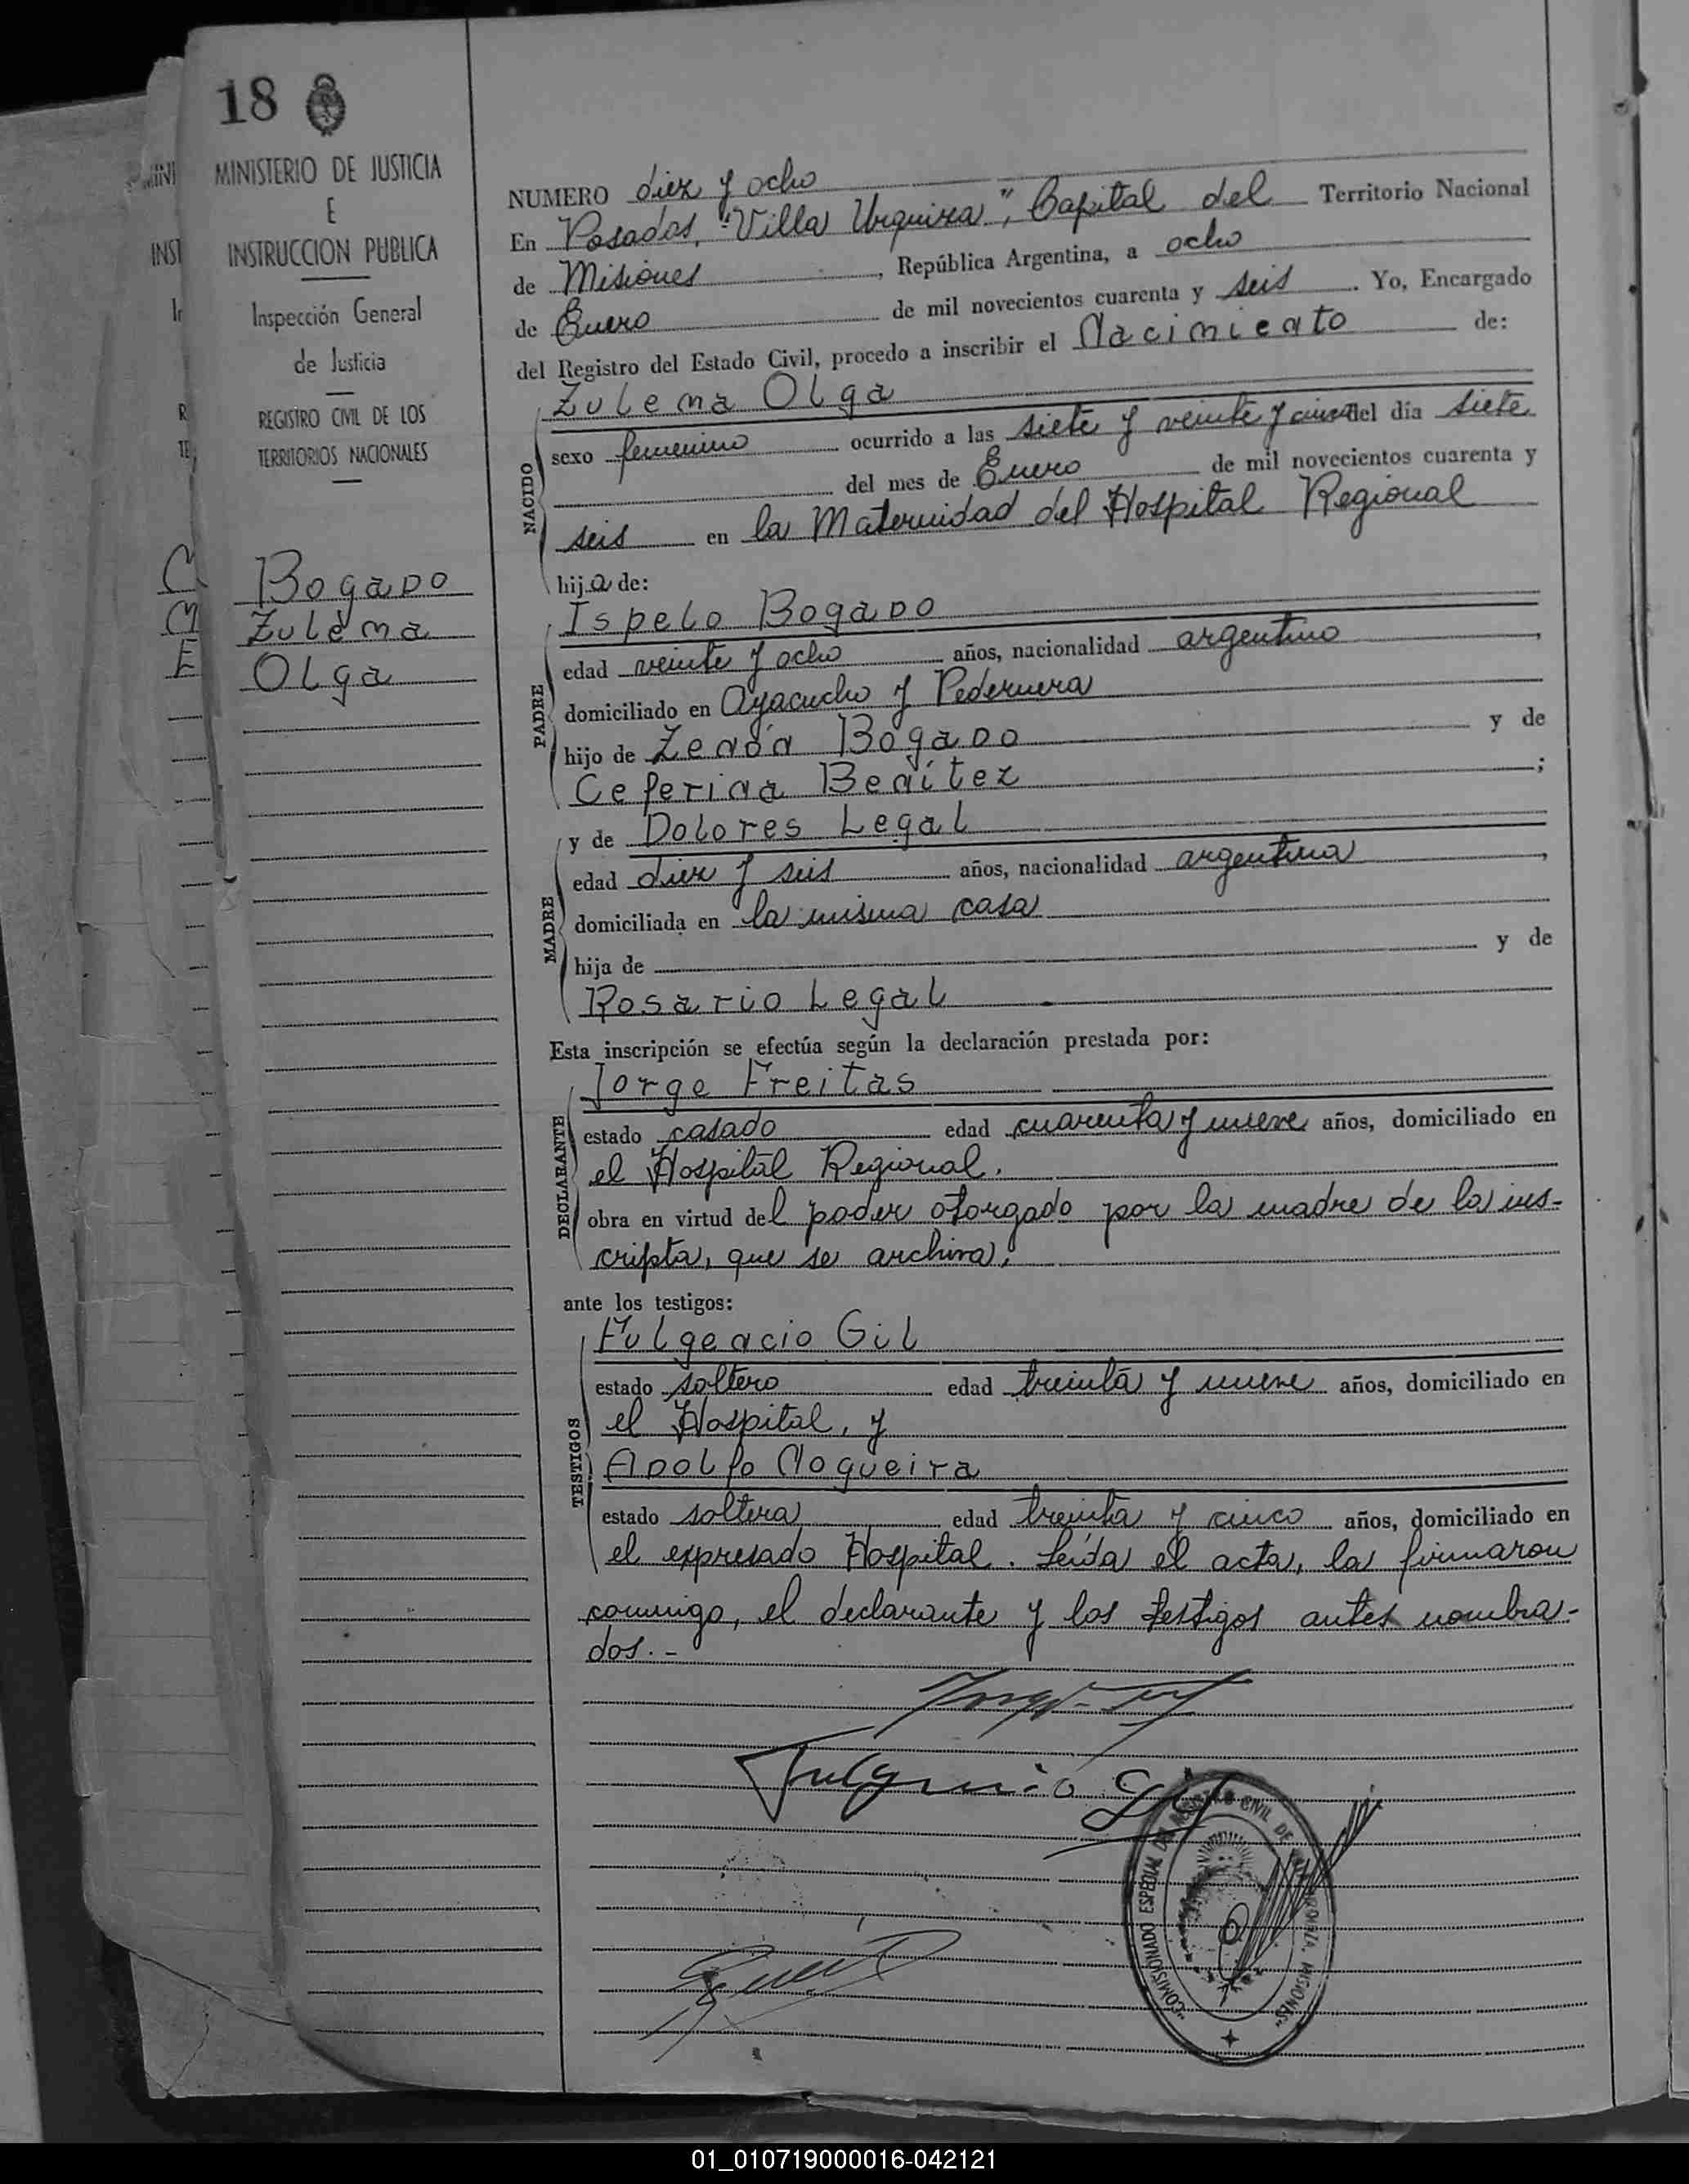 18
MINISTERIO DE JUSTICIA
E
INSTRUCCION PUBLICA
Inspección General
de Justicia
REGISTRO CIVIL DE LOS
TERRITORIOS NACIONALES
Bogado
Zulema
Olga
NUMERO diez y ocho
En Posadas, "Villa Urquiza", Capital del Territorio Nacional
de Misiones, República Argentina, a ocho
de Enero de mil novecientos cuarenta y seis. Yo, Encargado
del Registro del Estado Civil, procedo a inscribir el Nacimiento de:
NACIDO
Zulema Olga
sexo femenino ocurrido a las siete y veinte y cinco del día siete
del mes de Enero de mil novecientos cuarenta y
seis en la Maternidad del Hospital Regional
hija de:
PADRE
Ispelo Bogado
edad veinte y ocho años, nacionalidad argentino,
domiciliado en Ayacucho y Pedernera
hijo de Zenón Bogado y de
Ceferina Benítez;
MADRE
y de Dolores Legal
edad diez y seis años, nacionalidad argentina,
domiciliada en la misma casa
hija de y de
Rosario Legal
Esta inscripción se efectúa según la declaración prestada por:
DECLARANTE
Jorge Freitas
estado casado edad cuarenta y nueve años, domiciliado en
el Hospital Regional.
obra en virtud del poder otorgado por la madre de la ins-
cripta, que se archiva,
ante los testigos:
TESTIGOS
Fulgencio Gil
estado soltero edad treinta y nueve años, domiciliado en
el Hospital, y
Adolfo Nogueira
estado soltera edad treinta y cinco años, domiciliado en
el expresado Hospital. Leída el acta, la firmaron
conmigo, el declarante y los testigos antes nombra-
dos.-
Fulgencio Gil
"COMISIONADO ESPECIAL DEL REGISTRO CIVIL DE MISIONES"
01_010719000016-042121